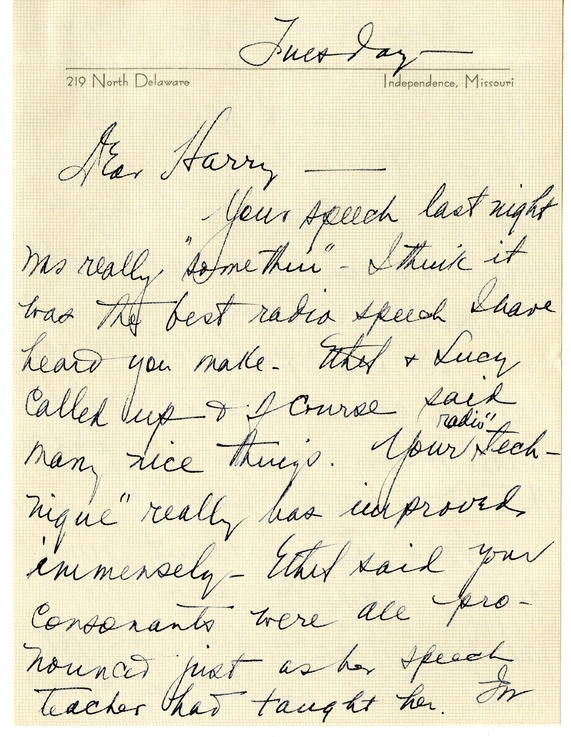 Tuesday—
219 North Delaware Independence, Missouri
Dear Harry —
Your speech last night
was really "somethin" - I think it
was the best radio speech I have
heard you make. Ethel & Lucy
called up & of course said
many nice things. Your "radio tech-
nique" really has improved
immensely - Ethel said your
consonants were all pro-
nounced just as her speech
teacher had taught her. In